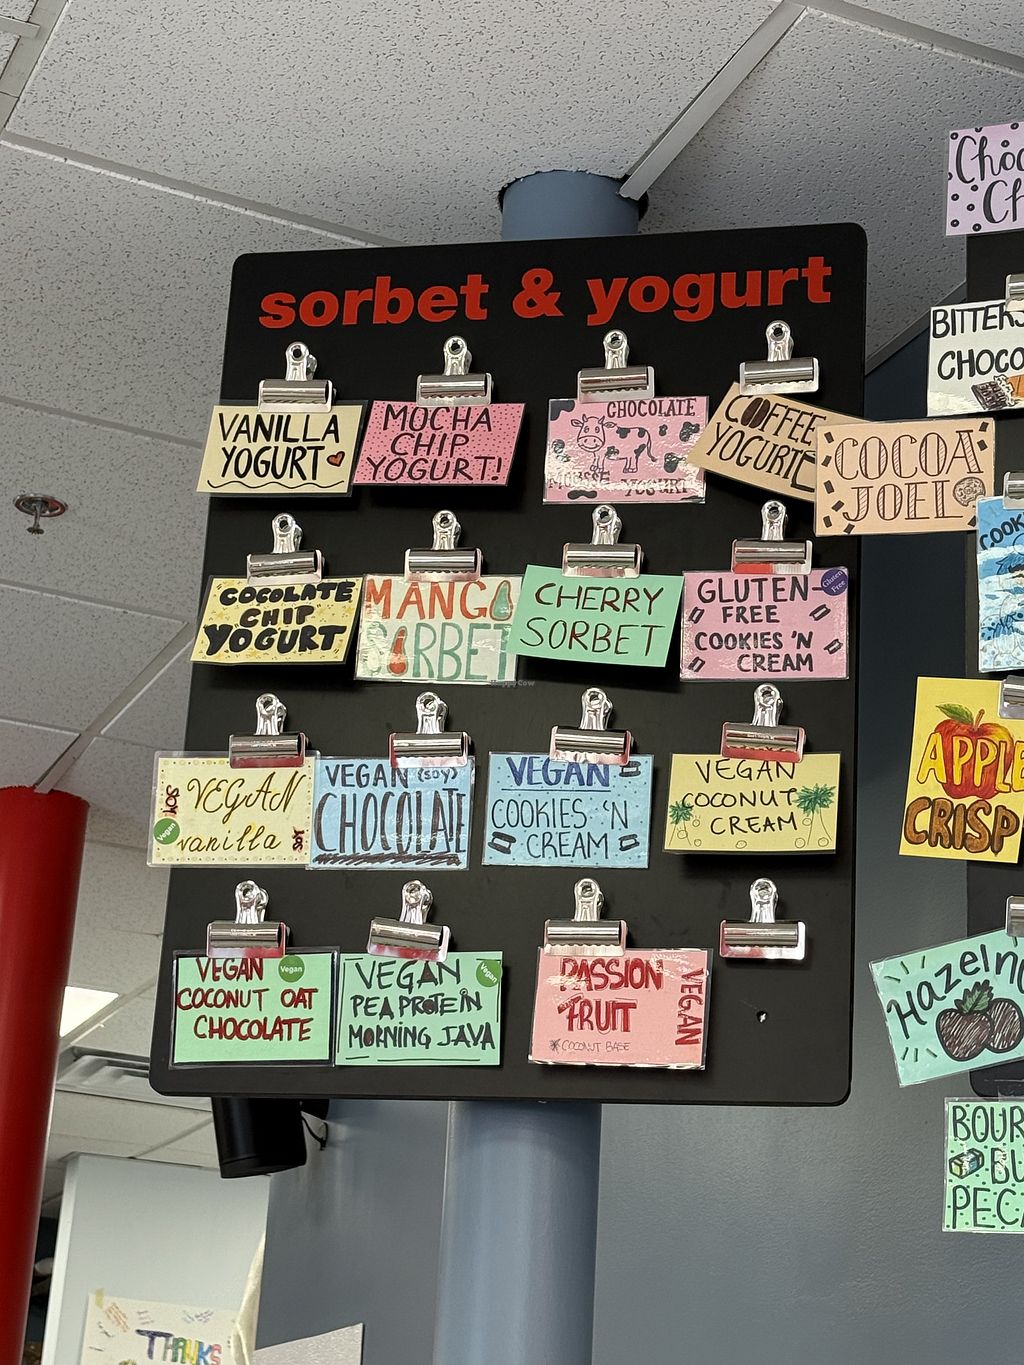 sorbet & yogurt
VANILLA
YOGURT
MOCHA
CHIP
YOGURT!
CHOCOLATE
MOUSSE YOGURT
COFFEE
YOGURT
COCOA
JOEL
COCOLATE
CHIP
YOGURT
MANGO
SORBET
CHERRY
SORBET
GLUTEN-
FREE
COOKIES 'N
CREAM
Gluten
Free
SOY
VEGAN
vanilla
Vegan
SOY
VEGAN (SOY)
CHOCOLATE
VEGAN
COOKIES 'N
CREAM
VEGAN
COCONUT
CREAM
VEGAN
Vegan
COCONUT OAT
CHOCOLATE
VEGAN
Vegan
PEA PROTEIN
MORNING JAVA
PASSION
FRUIT
VEGAN
*COCONUT BASE
Choc
Ch
BITTERS
CHOCO
COOK
APPLE
CRISP
Hazeln
BOUR
BU
PECA
THANKS
HappyCow